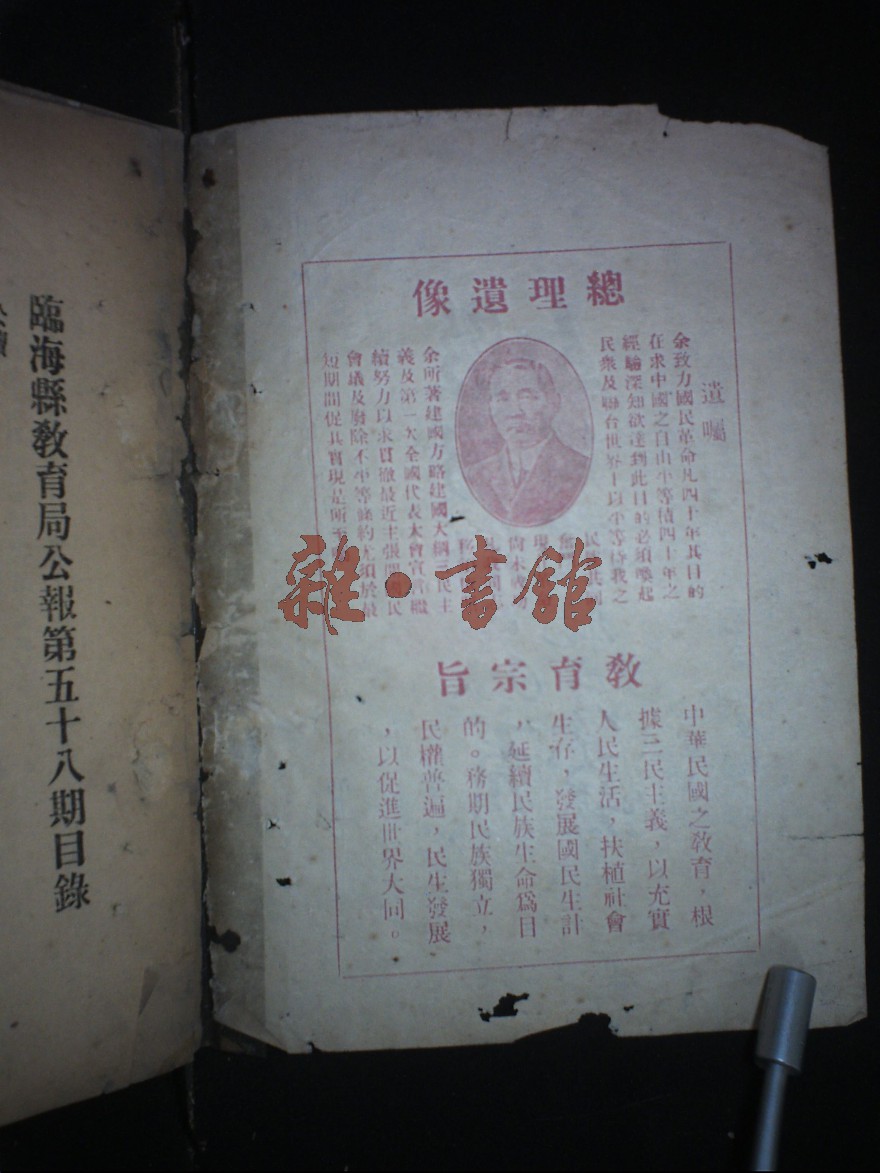 總理遺像
遺囑
余致力國民革命凡四十年其目的
在求中國之自由平等積四十年之
經驗深知欲達到此目的必須喚起
民衆及聯合世界上以平等待我之
民共同
現
尚未
余所著建國方略建國大綱三民主
義及第一次全國代表大會宣言繼
續努力以求貫徹最近主張開國民
會議及廢除不平等條約尤須於最
短期間促其實現是所至
雜·書館
教育宗旨
中華民國之教育，根
據三民主義，以充實
人民生活，扶植社會
生存，發展國民生計
，延續民族生命爲目
的。務期民族獨立，
民權普遍，民生發展
，以促進世界大同。
臨海縣教育局公報第五十八期目錄